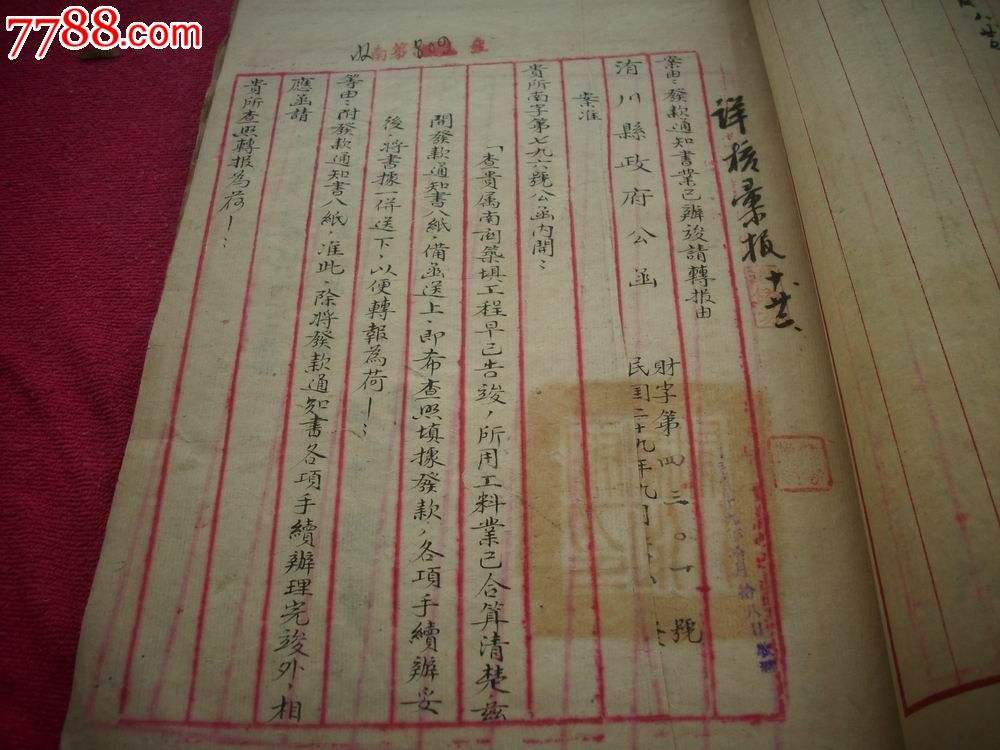 7788.com
收南第802
詳核彙报 十、廿三
案由：發款通知書業已辦竣請轉报由
財字第四三〇一號
洧川縣政府公函
民国二十九年九月
案准
貴所南字第七九六號公函內開：
「查貴属南囱築填工程早已告竣，所用工料業已合算清楚，茲
開發款通知書八紙，備函送上，即希查照填據發款，各項手續辦妥
後，將書據一併送下，以便轉報為荷！」
等由：附發款通知書八紙，准此，除將發款通知書各項手續辦理完竣外，相
應函請
貴所查照轉报為荷！